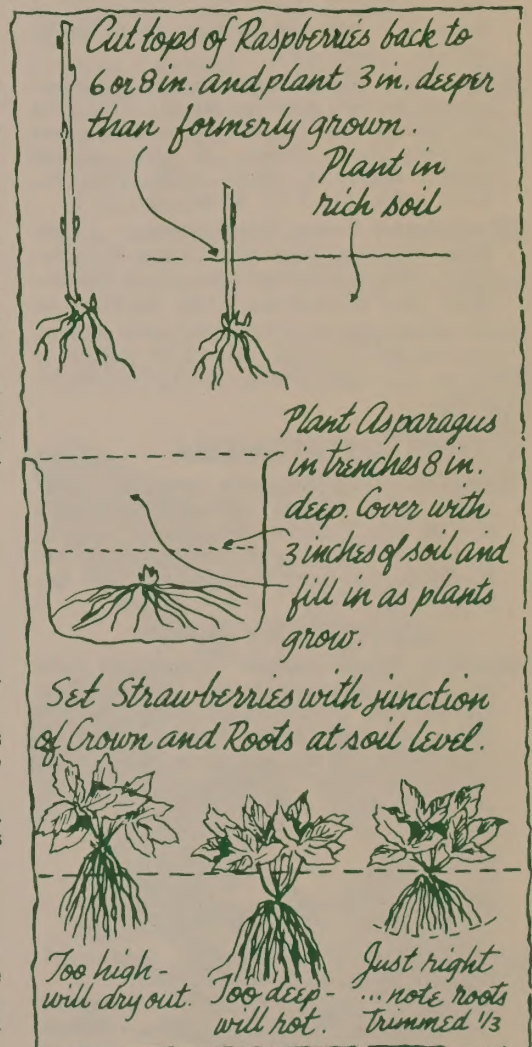 Cut tops of Raspberries back to
6 or 8 in. and plant 3 in. deeper
than formerly grown.
Plant in
rich soil
Plant Asparagus
in trenches 8 in.
deep. Cover with
3 inches of soil and
fill in as plants
grow.
Set Strawberries with junction
of Crown and Roots at soil level.
Too high-
will dry out.
Too deep-
will rot.
Just right
...note roots
trimmed 1/3